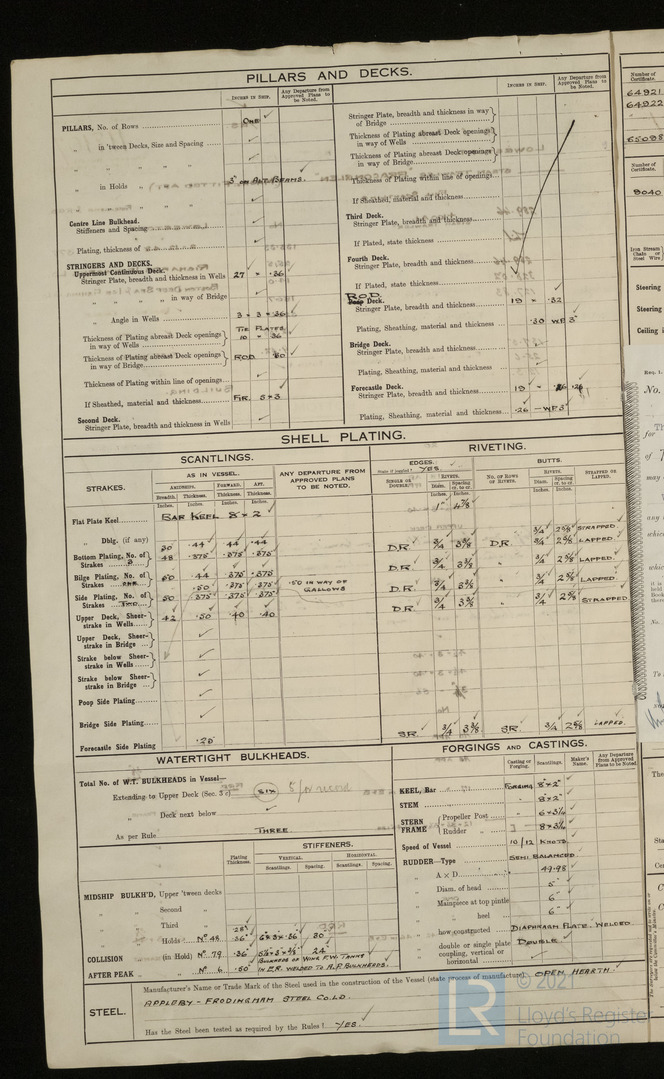 PILLARS AND DECKS.
Inches in Ship.
Any Departure from Approved Plans to be Noted.
PILLARS, No. of Rows ONE
„ in 'tween Decks, Size and Spacing
„ in Holds 3" ON ALT. BEAMS.
Centre Line Bulkhead.
Stiffeners and Spacing
Plating, thickness of
STRINGERS AND DECKS.
Uppermost Continuous Deck.
Stringer Plate, breadth and thickness in Wells 27 × .36
„ „ „ in way of Bridge
„ Angle in Wells 3 × 3 × .36
Thickness of Plating abreast Deck openings in way of Wells TIE PLATES 10 × 36
Thickness of Plating abreast Deck openings in way of Bridge
Thickness of Plating within line of openings
If Sheathed, material and thickness FIR. 5 × 3
Second Deck.
Stringer Plate, breadth and thickness in Wells
Inches in Ship.
Any Departure from Approved Plans to be Noted.
Stringer Plate, breadth and thickness in way of Bridge
Thickness of Plating abreast Deck openings in way of Wells
Thickness of Plating abreast Deck openings in way of Bridge
Thickness of Plating within line of openings
If Sheathed, material and thickness
Third Deck.
Stringer Plate, breadth and thickness
If Plated, state thickness
Fourth Deck.
Stringer Plate, breadth and thickness
If Plated, state thickness
Deck.
Stringer Plate, breadth and thickness 19 × .32
Plating, Sheathing, material and thickness .30 WF 3"
Bridge Deck.
Stringer Plate, breadth and thickness
Plating, Sheathing, material and thickness
Forecastle Deck.
Stringer Plate, breadth and thickness 19 × .26
Plating, Sheathing, material and thickness .26 — WF 3"
SHELL PLATING.
SCANTLINGS.
RIVETING.
STRAKES.
AS IN VESSEL.
ANY DEPARTURE FROM APPROVED PLANS TO BE NOTED.
EDGES.
State if joggled? YES
BUTTS.
Amidships. Forward. Aft.
Breadth. Thickness. Thickness. Thickness.
Single or Double? Rivets. Diam. Spacing cr. to cr.
No. of Rows of Rivets. Rivets. Diam. Spacing cr. to cr. Strapped or Lapped.
Inches. Inches. Inches. Inches.
Flat Plate Keel BAR KEEL 8 × 2 1" 4⅞
„ Dblg. (if any) ¾ 2⅝ STRAPPED
30 .44 .44 .44 D.R ¾ 3⅜ D.R. ¾ 2⅝ LAPPED.
Bottom Plating, No. of Strakes 48 .375 .375 .375
Bilge Plating, No. of Strakes ONE 60 .44 .375 .375 D.R. ¾ 3⅜ „ ¾ 2⅝ LAPPED.
Side Plating, No. of Strakes TWO 50 .50 .375 .375 .375 .50 IN WAY OF GALLOWS D.R. ¾ 3⅜ „ ¾ 2⅝ LAPPED
Upper Deck, Sheer-strake in Wells 42 .50 .40 .40 D.R ¾ 3⅜ „ ¾ 2⅝ STRAPPED
Upper Deck, Sheer-strake in Bridge
Strake below Sheer-strake in Wells
Strake below Sheer-strake in Bridge
Poop Side Plating
Bridge Side Plating
Forecastle Side Plating .26 S.R. ¾ 3⅜ S.R. ¾ 2⅝ LAPPED.
WATERTIGHT BULKHEADS.
Total No. of W.T. BULKHEADS in Vessel—
Extending to Upper Deck (Sec. 3 c) SIX
„ Deck next below
As per Rule THREE
Plating Thickness.
STIFFENERS.
VERTICAL. HORIZONTAL.
Scantlings. Spacing. Scantlings. Spacing.
MIDSHIP BULKH'D, Upper 'tween decks
„ „ Second „
„ „ Third „
„ „ Holds Nº 48 .36 6 × 3 × .36 30"
COLLISION „ (in Hold) Nº 79 .36 24"
AFTER PEAK „ „ Nº 6 .50
BULKHEADS OF WING F.W. TANKS IN E.R. WELDED TO A.P. BULKHEADS.
FORGINGS AND CASTINGS.
Casting or Forging. Scantlings. Maker's Name. Any Departure from Approved Plans to be Noted.
KEEL, Bar FORGING 8 × 2"
STEM „ 8 × 2"
STERN FRAME Propeller Post „ 6 × 3¼
Rudder „ 8 × 3¼
Speed of Vessel 10/12 KNOTS
RUDDER—Type SEMI BALANCED.
„ A × D 49.98
„ Diam. of head 5"
„ Mainpiece at top pintle 6"
„ „ heel 6"
„ how constructed DIAPHRAGM PLATE WELDED.
„ double or single plate DOUBLE
„ coupling, vertical or horizontal
STEEL.
Manufacturer's Name or Trade Mark of the Steel used in the construction of the Vessel (state process of manufacture). OPEN HEARTH.
APPLEBY - FRODINGHAM STEEL CO. LD.
Has the Steel been tested as required by the Rules? YES.
Number of Certificate.
64921
64922
65098
Number of Certificate.
9040
Iron Stream Chain or Steel Wire
Steering
Steering
Ceiling
No.
© 2021
LR
Lloyd's Register
Foundation